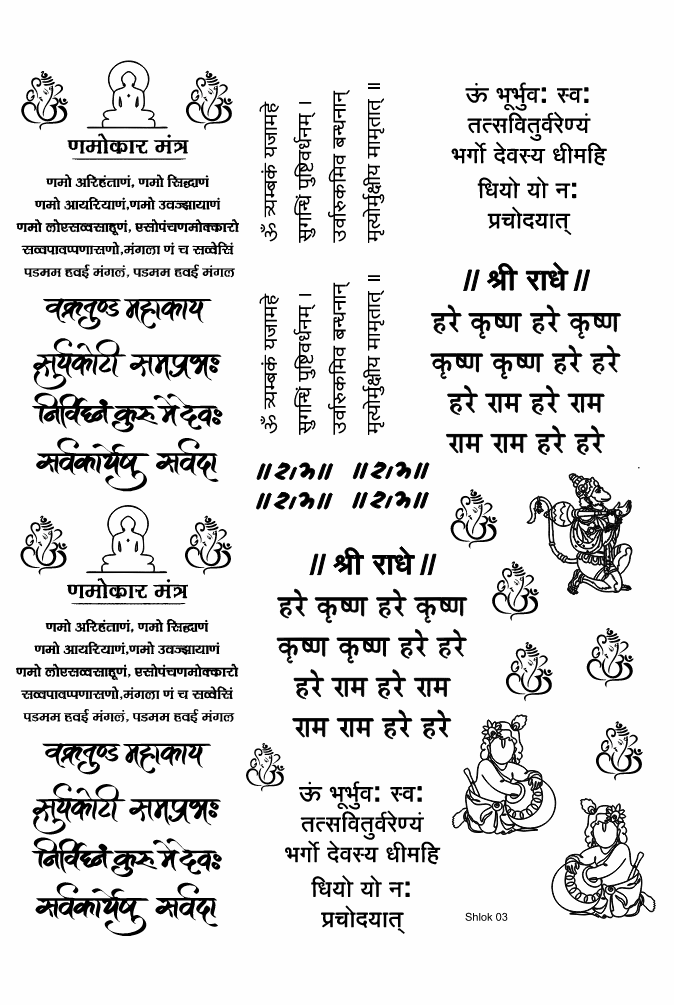 णमोकार मंत्र
णमो अरिहंताणं, णमो सिद्धाणं
णमो आयरियाणं,णमो उवज्झायाणं
णमो लोएसव्वसाहूणं, एसोपंचणमोक्कारो
सव्वपावप्पणासणो,मंगला णं च सव्वेसिं
पडमम हवई मंगलं, पडमम हवई मंगल
वक्रतुण्ड महाकाय
सूर्यकोटी समप्रभः
निर्विघ्नं कुरु मे देवः
सर्वकार्येषु सर्वदा
णमोकार मंत्र
णमो अरिहंताणं, णमो सिद्धाणं
णमो आयरियाणं,णमो उवज्झायाणं
णमो लोएसव्वसाहूणं, एसोपंचणमोक्कारो
सव्वपावप्पणासणो,मंगला णं च सव्वेसिं
पडमम हवई मंगलं, पडमम हवई मंगल
वक्रतुण्ड महाकाय
सूर्यकोटी समप्रभः
निर्विघ्नं कुरु मे देवः
सर्वकार्येषु सर्वदा
ॐ त्र्यम्बकं यजामहे
सुगन्धिं पुष्टिवर्धनम् ।
उर्वारुकमिव बन्धनान्
मृत्योर्मुक्षीय मामृतात् ॥
ॐ त्र्यम्बकं यजामहे
सुगन्धिं पुष्टिवर्धनम् ।
उर्वारुकमिव बन्धनान्
मृत्योर्मुक्षीय मामृतात् ॥
॥राम॥ ॥राम॥
॥राम॥ ॥राम॥
// श्री राधे //
हरे कृष्ण हरे कृष्ण
कृष्ण कृष्ण हरे हरे
हरे राम हरे राम
राम राम हरे हरे
ऊं भूर्भुव: स्व:
तत्सवितुर्वरेण्यं
भर्गो देवस्य धीमहि
धियो यो न:
प्रचोदयात्
ऊं भूर्भुव: स्व:
तत्सवितुर्वरेण्यं
भर्गो देवस्य धीमहि
धियो यो न:
प्रचोदयात्
// श्री राधे //
हरे कृष्ण हरे कृष्ण
कृष्ण कृष्ण हरे हरे
हरे राम हरे राम
राम राम हरे हरे
Shlok 03